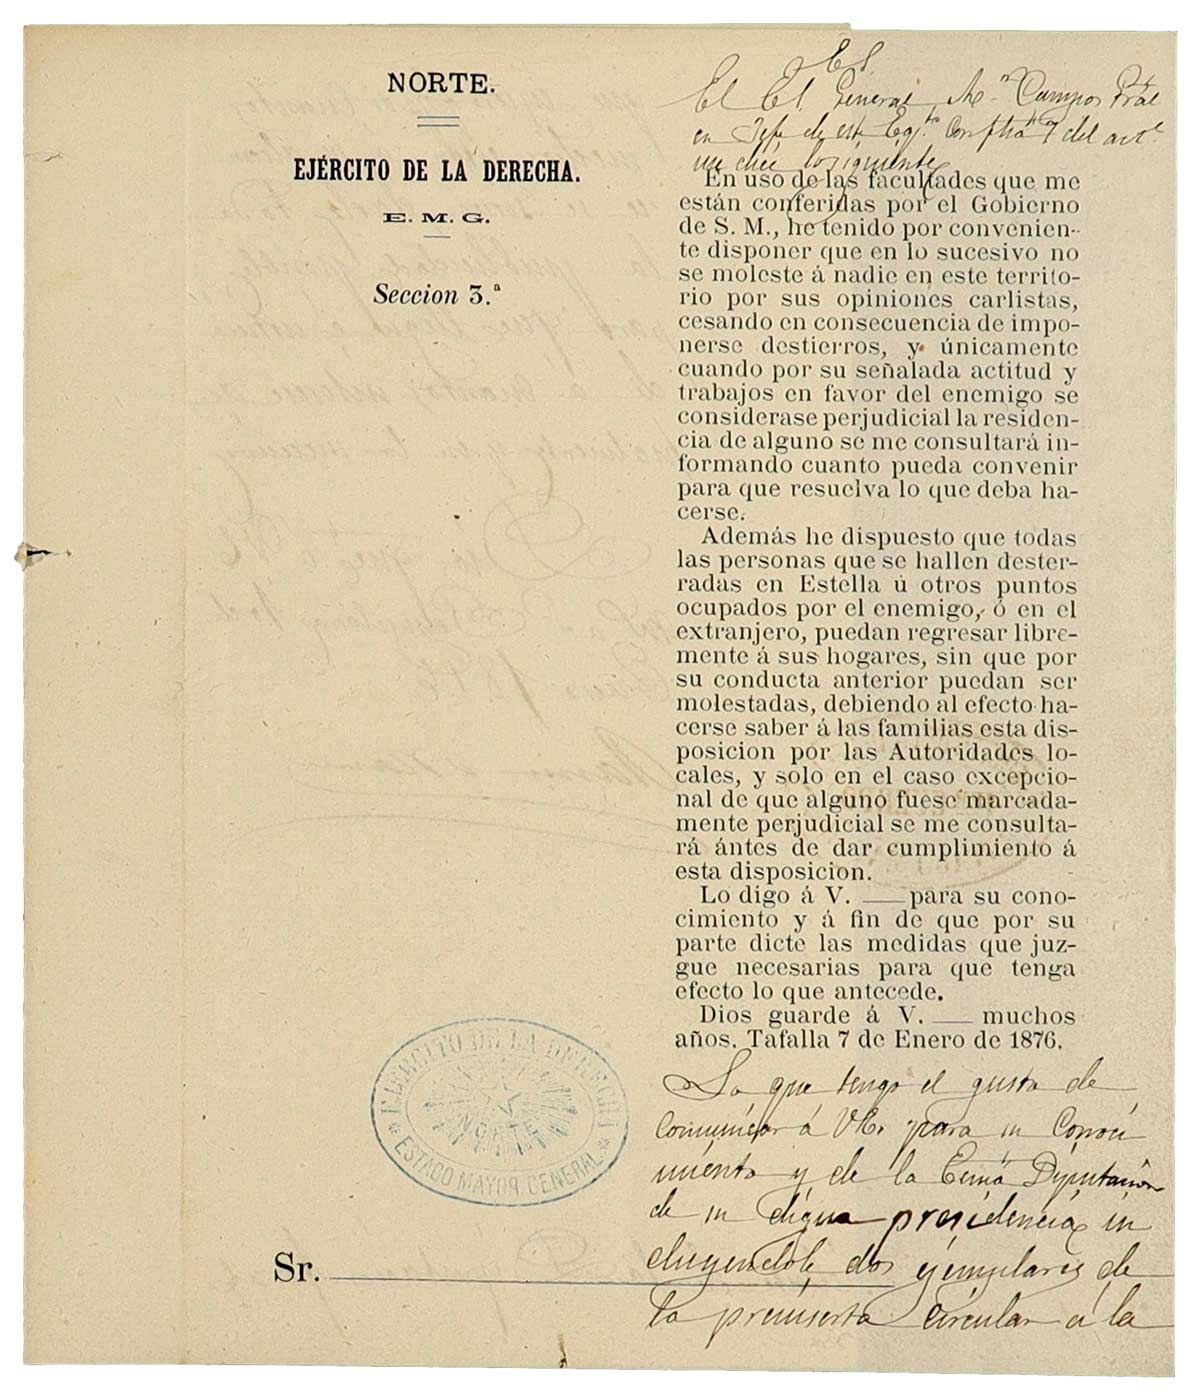 NORTE.
EJÉRCITO DE LA DERECHA.
E. M. G.
Seccion 3.ª
El General Campos Gral
en Jefe de este Ejto con fha 7 del actl
me dice lo siguiente
En uso de las facultades que me
están conferidas por el Gobierno
de S. M., he tenido por convenien-
te disponer que en lo sucesivo no
se moleste á nadie en este territo-
rio por sus opiniones carlistas,
cesando en consecuencia de impo-
nerse destierros, y únicamente
cuando por su señalada actitud y
trabajos en favor del enemigo se
considerase perjudicial la residen-
cia de alguno se me consultará in-
formando cuanto pueda convenir
para que resuelva lo que deba ha-
cerse.
Además he dispuesto que todas
las personas que se hallen dester-
radas en Estella ú otros puntos
ocupados por el enemigo, ó en el
extranjero, puedan regresar libre-
mente á sus hogares, sin que por
su conducta anterior puedan ser
molestadas, debiendo al efecto ha-
cerse saber á las familias esta dis-
posicion por las Autoridades lo-
cales, y solo en el caso excepcio-
nal de que alguno fuese marcada-
mente perjudicial se me consulta-
rá ántes de dar cumplimiento á
esta disposicion.
Lo digo á V. ___ para su cono-
cimiento y á fin de que por su
parte dicte las medidas que juz-
gue necesarias para que tenga
efecto lo que antecede.
Dios guarde á V. ___ muchos
años. Tafalla 7 de Enero de 1876.
Lo que tengo el gusto de
comunicar á VE. para su conoci
miento y de la Exma Diputación
de su digna presidencia in
cluyendole dos ejemplares de
la preinserta circular á la
EJERCITO DE LA DERECHA
NORTE
ESTADO MAYOR GENERAL
Sr.